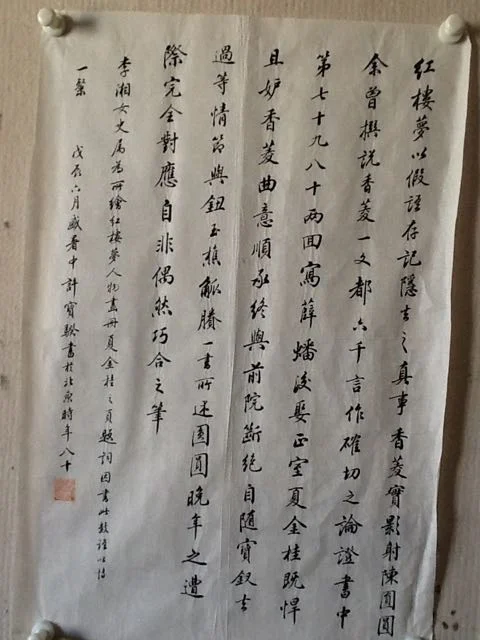 紅樓夢以假語存記隱去之真事香菱實影射陳圓圓
余曾撰說香菱一文都六千言作確切之論證書中
第七十九八十兩回寫薛蟠後娶正室夏金桂既悍
且妒香菱曲意順承終與前院斷絕自隨寶釵去
過等情節與鈕玉樵觚賸一書所述圓圓晚年之遭
際完全對應自非偶然巧合之筆
李湘女史屬為所繪紅樓夢人物畫冊夏金桂之頁題詞因書此數語以
一粲 戊辰六月盛暑中許寶騤書於北京時年八十